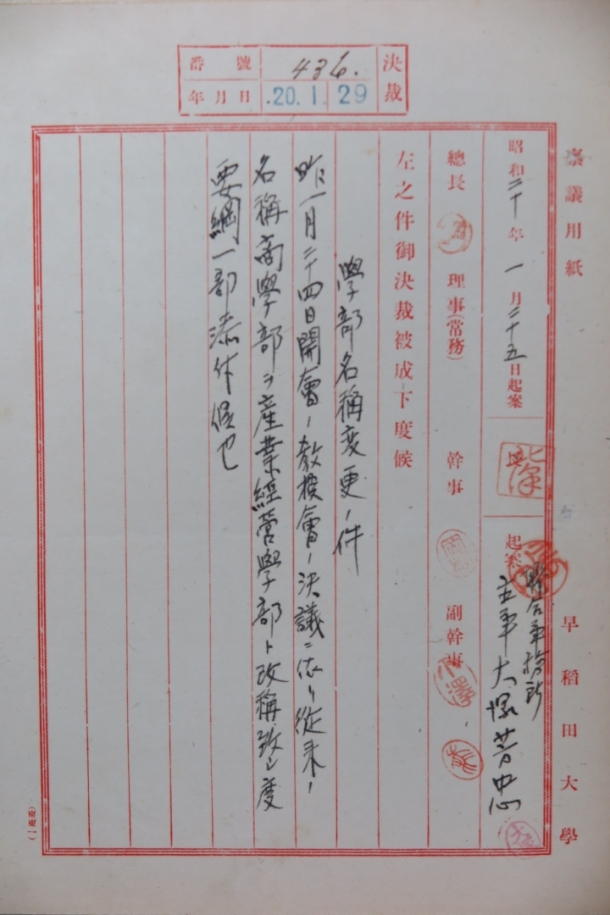 決裁
番號 436.
年月日 20.1.29
稟議用紙
早稻田大學
昭和二十年一月二十五日起案
起案
主事大塚芳忠
總長 理事(常務) 幹事 副幹事
左之件御決裁被成下度候
學部名稱変更ノ件
昨一月二十四日開會ノ教授會ノ決議ニ依リ從来ノ
名稱商學部ヲ産業經營學部ト改稱致シ度
要綱一部添付候也